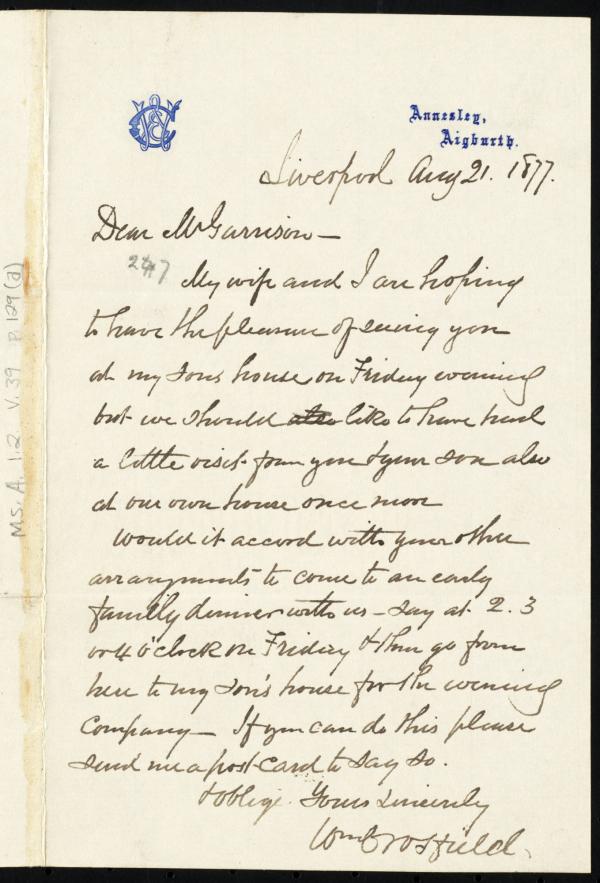 Annesley,
Aigburth.
Liverpool Aug 21. 1877.
Dear Mr Garrison —
247
My wife and I are hoping
to have the pleasure of seeing you
at my son's house on Friday evening
but we should also like to have had
a little visit from you & your son also
at our own house once more
Would it accord with your other
arrangements to come to an early
family dinner with us – say at 2. 3
or 4 o'clock on Friday & then go from
here to my son's house for the evening
Company – If you can do this please
send me a post-card to say so.
& oblige. Yours sincerely
Wm Crosfield.
MS. A. 1.2 V. 39 p. 129 (a)